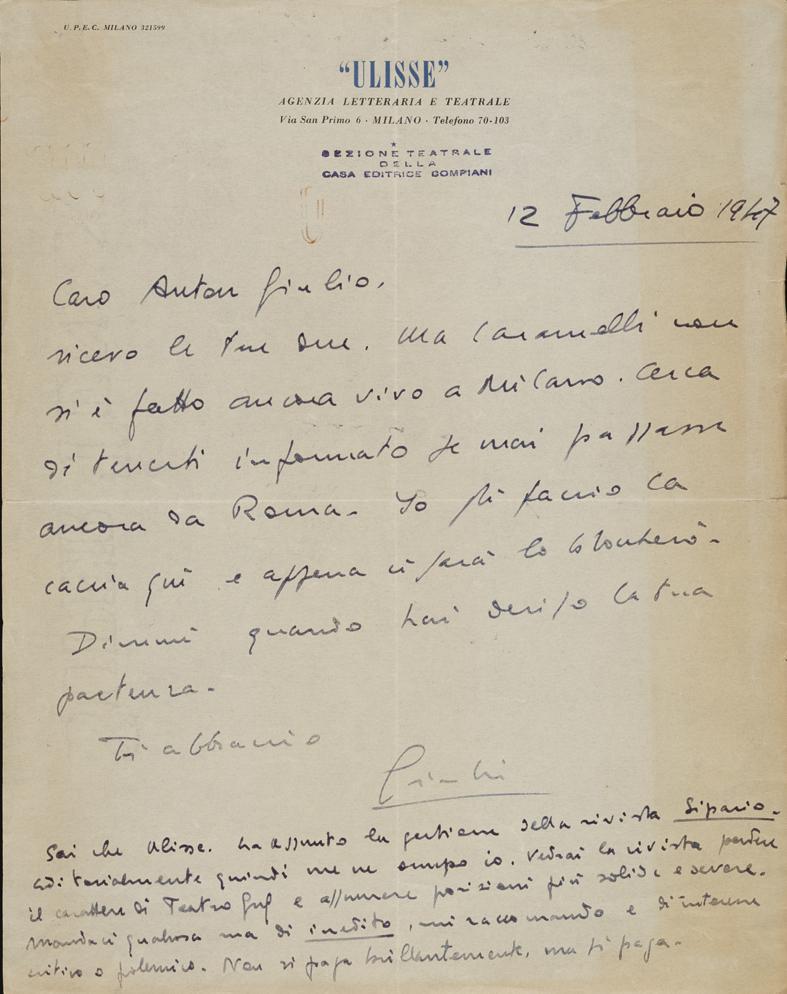 U.P.E.C. MILANO 321599
“ULISSE”
AGENZIA LETTERARIA E TEATRALE
Via San Primo 6 · MILANO · Telefono 70-103
SEZIONE TEATRALE
DELLA
CASA EDITRICE BOMPIANI
12 Febbraio 1947
Caro Anton Giulio,
ricevo le tue due. Ma Caramelli non
si è fatto ancora vivo a Milano. Cerca
di tenerti informato se mai passasse
ancora da Roma. Io gli faccio la
caccia qui e appena ci sarà lo bloccherò.
Dimmi quando hai deciso la tua
partenza.
Ti abbraccio
Sai che Ulisse ha assunto la gestione della rivista Sipario.
Editorialmente quindi me ne occupo io. Vedrai la rivista perdere
il carattere di Teatro Guf e assumere posizioni più solide e severe.
Mandaci qualcosa ma di inedito, mi raccomando e di interesse
critico o polemico. Non si paga brillantemente, ma si paga.